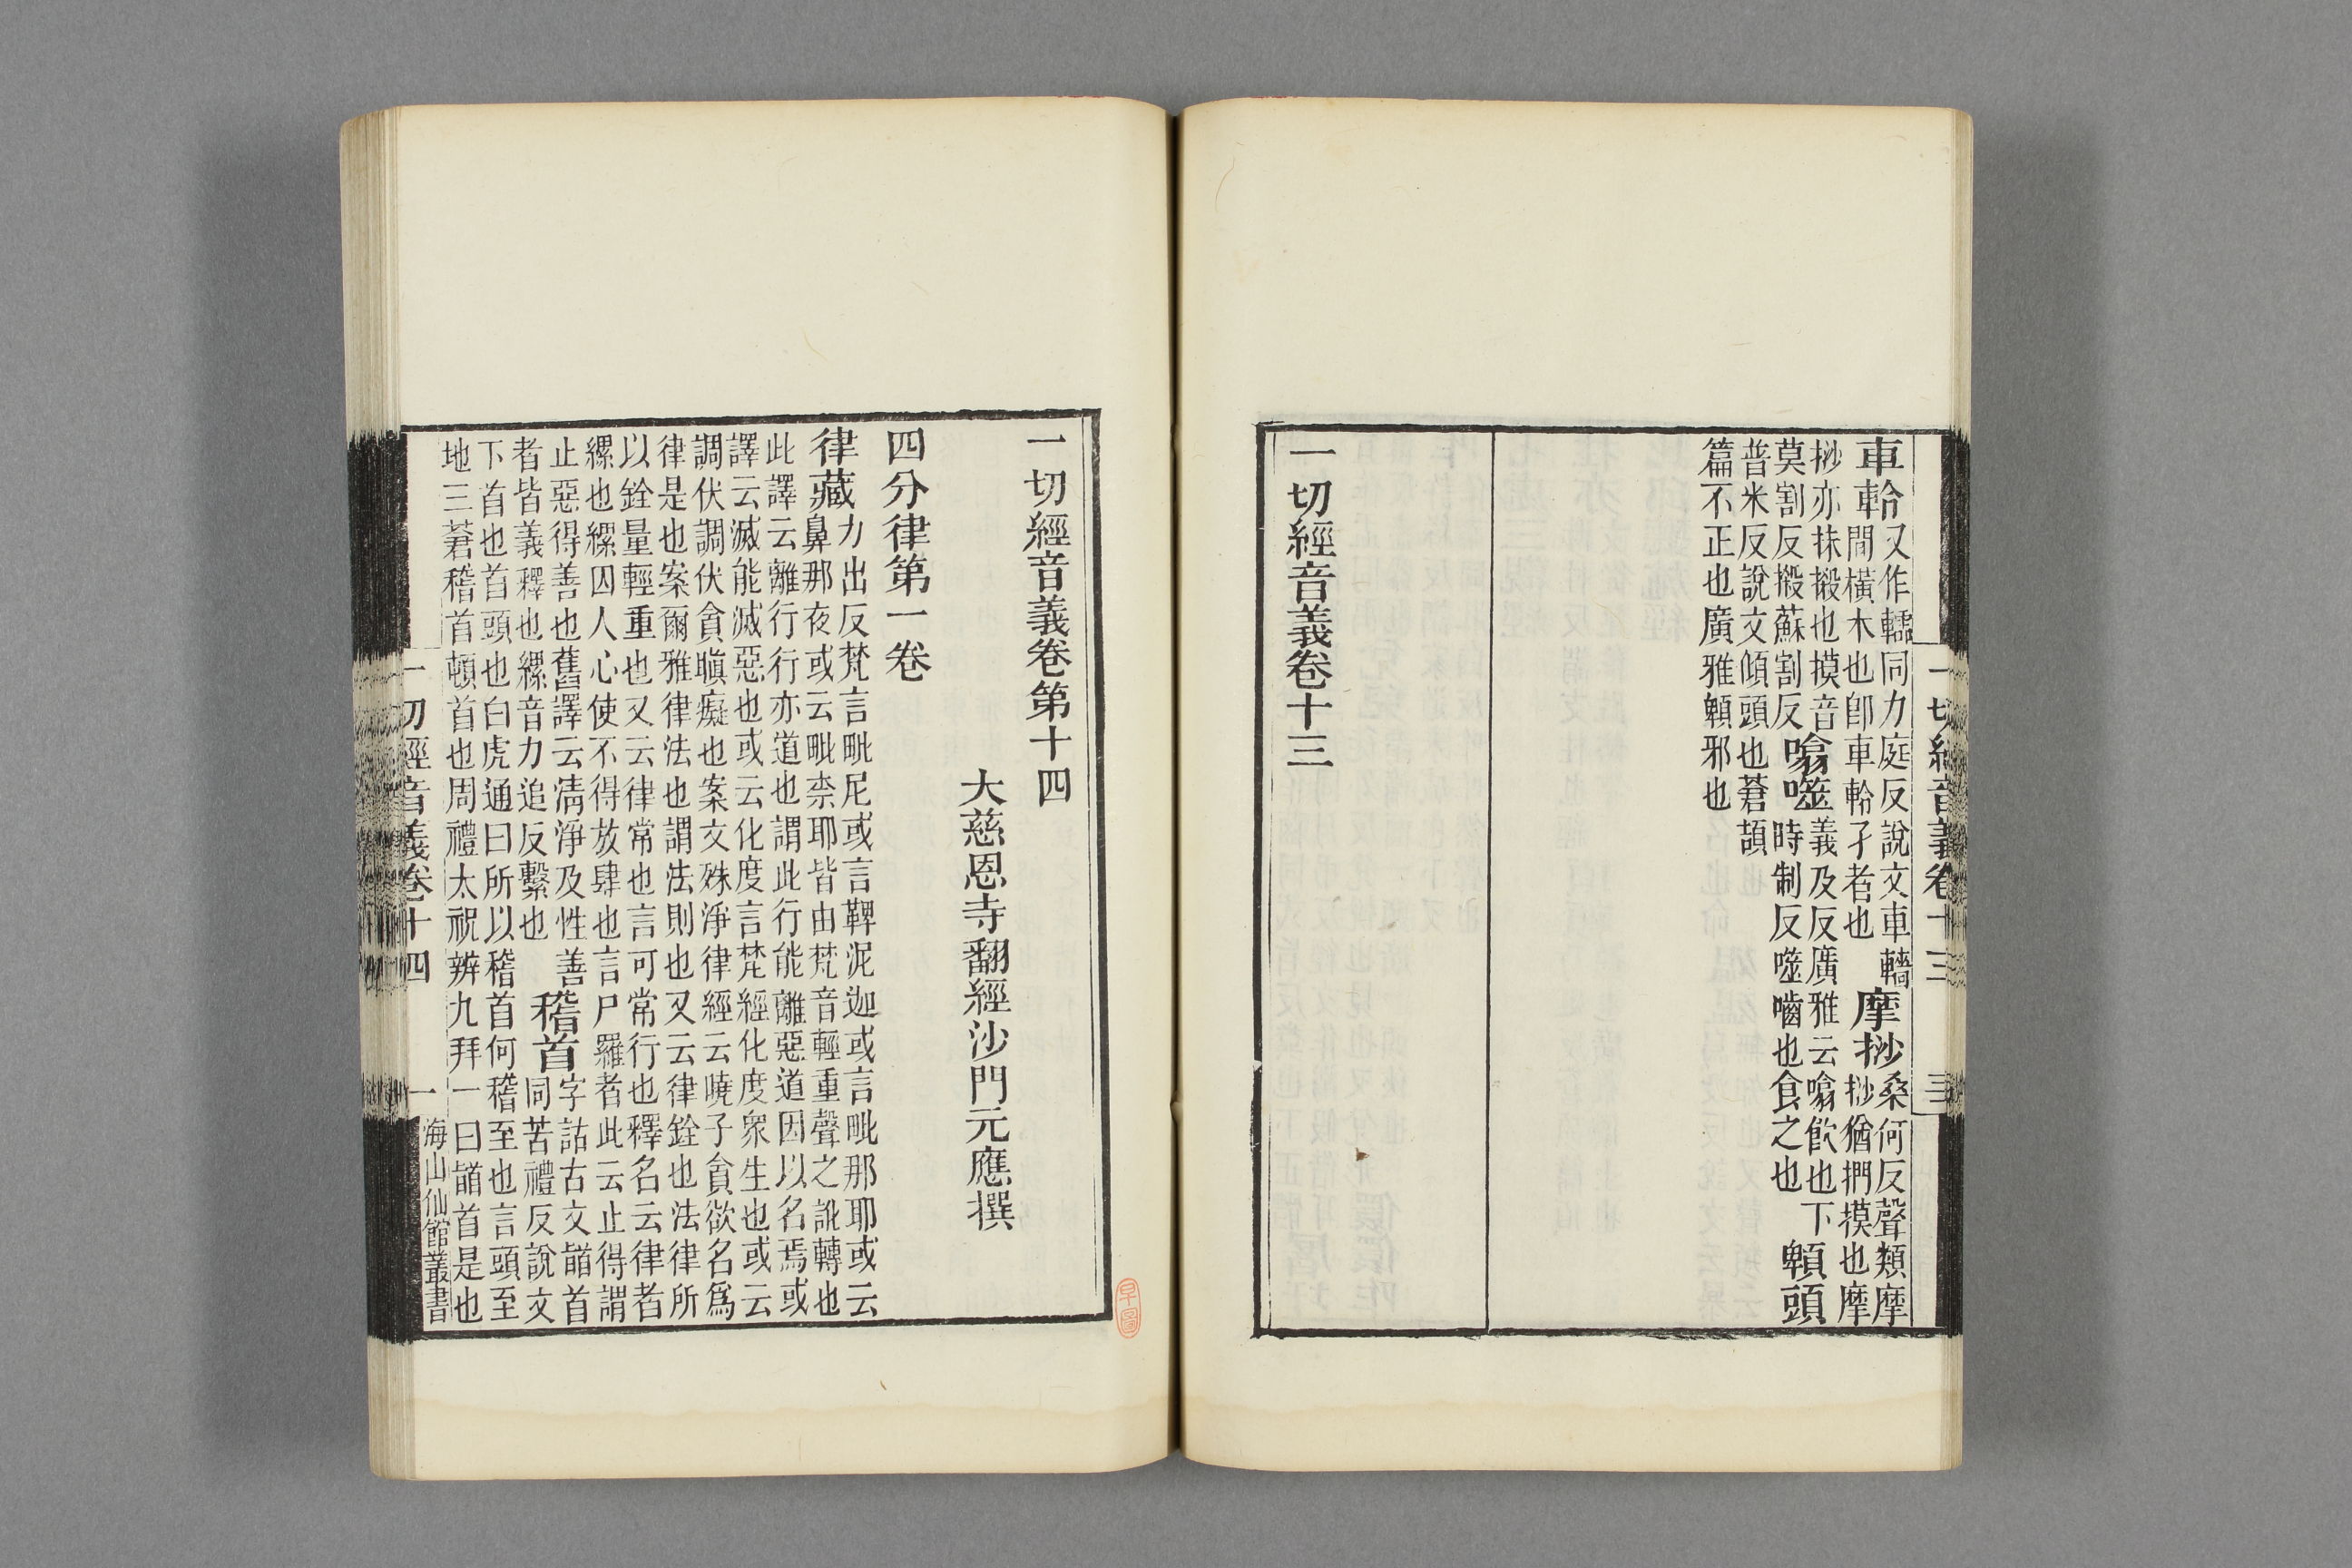 車軨
又作轜同力庭反說文車轖
間橫木也卽車軨子者也
摩挱
桑何反聲類摩
挱猶捫摸也摩
挱亦抹摋也摸音
莫割反摋蘇割反
噏噬
義及反廣雅云噏飮也下
時制反噬嚙也食之也
頼頭
普米反說文傾頭也蒼頡
篇不正也廣雅頼邪也
一切經音義卷十三
一切經音義卷十三
三
一切經音義卷第十四
大慈恩寺翻經沙門元應撰
四分律第一卷
律藏
力出反梵言毗尼或言鞞泥迦或言毗那耶或云
鼻那夜或云毗柰耶皆由梵音輕重聲之訛轉也
此譯云離行行亦道也謂此行能離惡道因以名焉或
譯云滅能滅惡也或云化度言梵經化度衆生也或云
調伏調伏貪瞋癡也案文殊淨律經云曉子貪欲名爲
律是也案爾雅律法也謂法則也又云律銓也法律所
以銓量輕重也又云律常也言可常行也釋名云律者
縲也縲囚人心使不得放肆也言尸羅者此云止得謂
止惡得善也舊譯云淸淨及性善
者皆義釋也縲音力追反繫也
稽首
字詁古文䭫首
同苦禮反說文
下首也首頭也白虎通曰所以稽首何稽至也言頭至
地三蒼稽首頓首也周禮太祝辨九拜一曰䭫首是也
一切經音義卷十四
一
海山仙館叢書
早圖